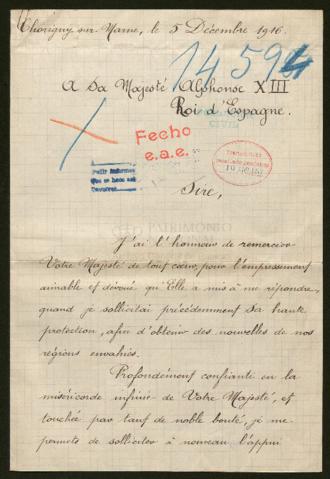 Thorigny-sur-Marne, le 5 Décembre 1916.
14594
A Sa Majesté Alphonse XIII
Roi d'Espagne.
Fecho
e.a.e.
Pedir informes
que se hace así
Sire,
PATRIMONIO
J'ai l'honneur de remercier
Votre Majesté de tout cœur, pour l'empressement
aimable et dévoué qu'Elle a mis à me répondre,
quand je sollicitai précédemment Sa haute
protection, afin d'obtenir des nouvelles de nos
régions envahies.
Profondément confiante en la
miséricorde infinie de Votre Majesté, et
touchée par tant de noble bonté, je me
permets de solliciter à nouveau l'appui